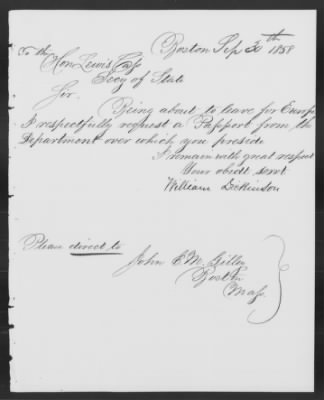 Boston Sep 30th 1858
To the
Hon Lewis Cass
Secy of State
Sir.
Being about to leave for Europe
I respectfully request a Passport from the
Department over which you preside
I remain with great respect
Your obedt servt
William Dickinson
Please direct to
John E M Gilley
Boston
Mass.